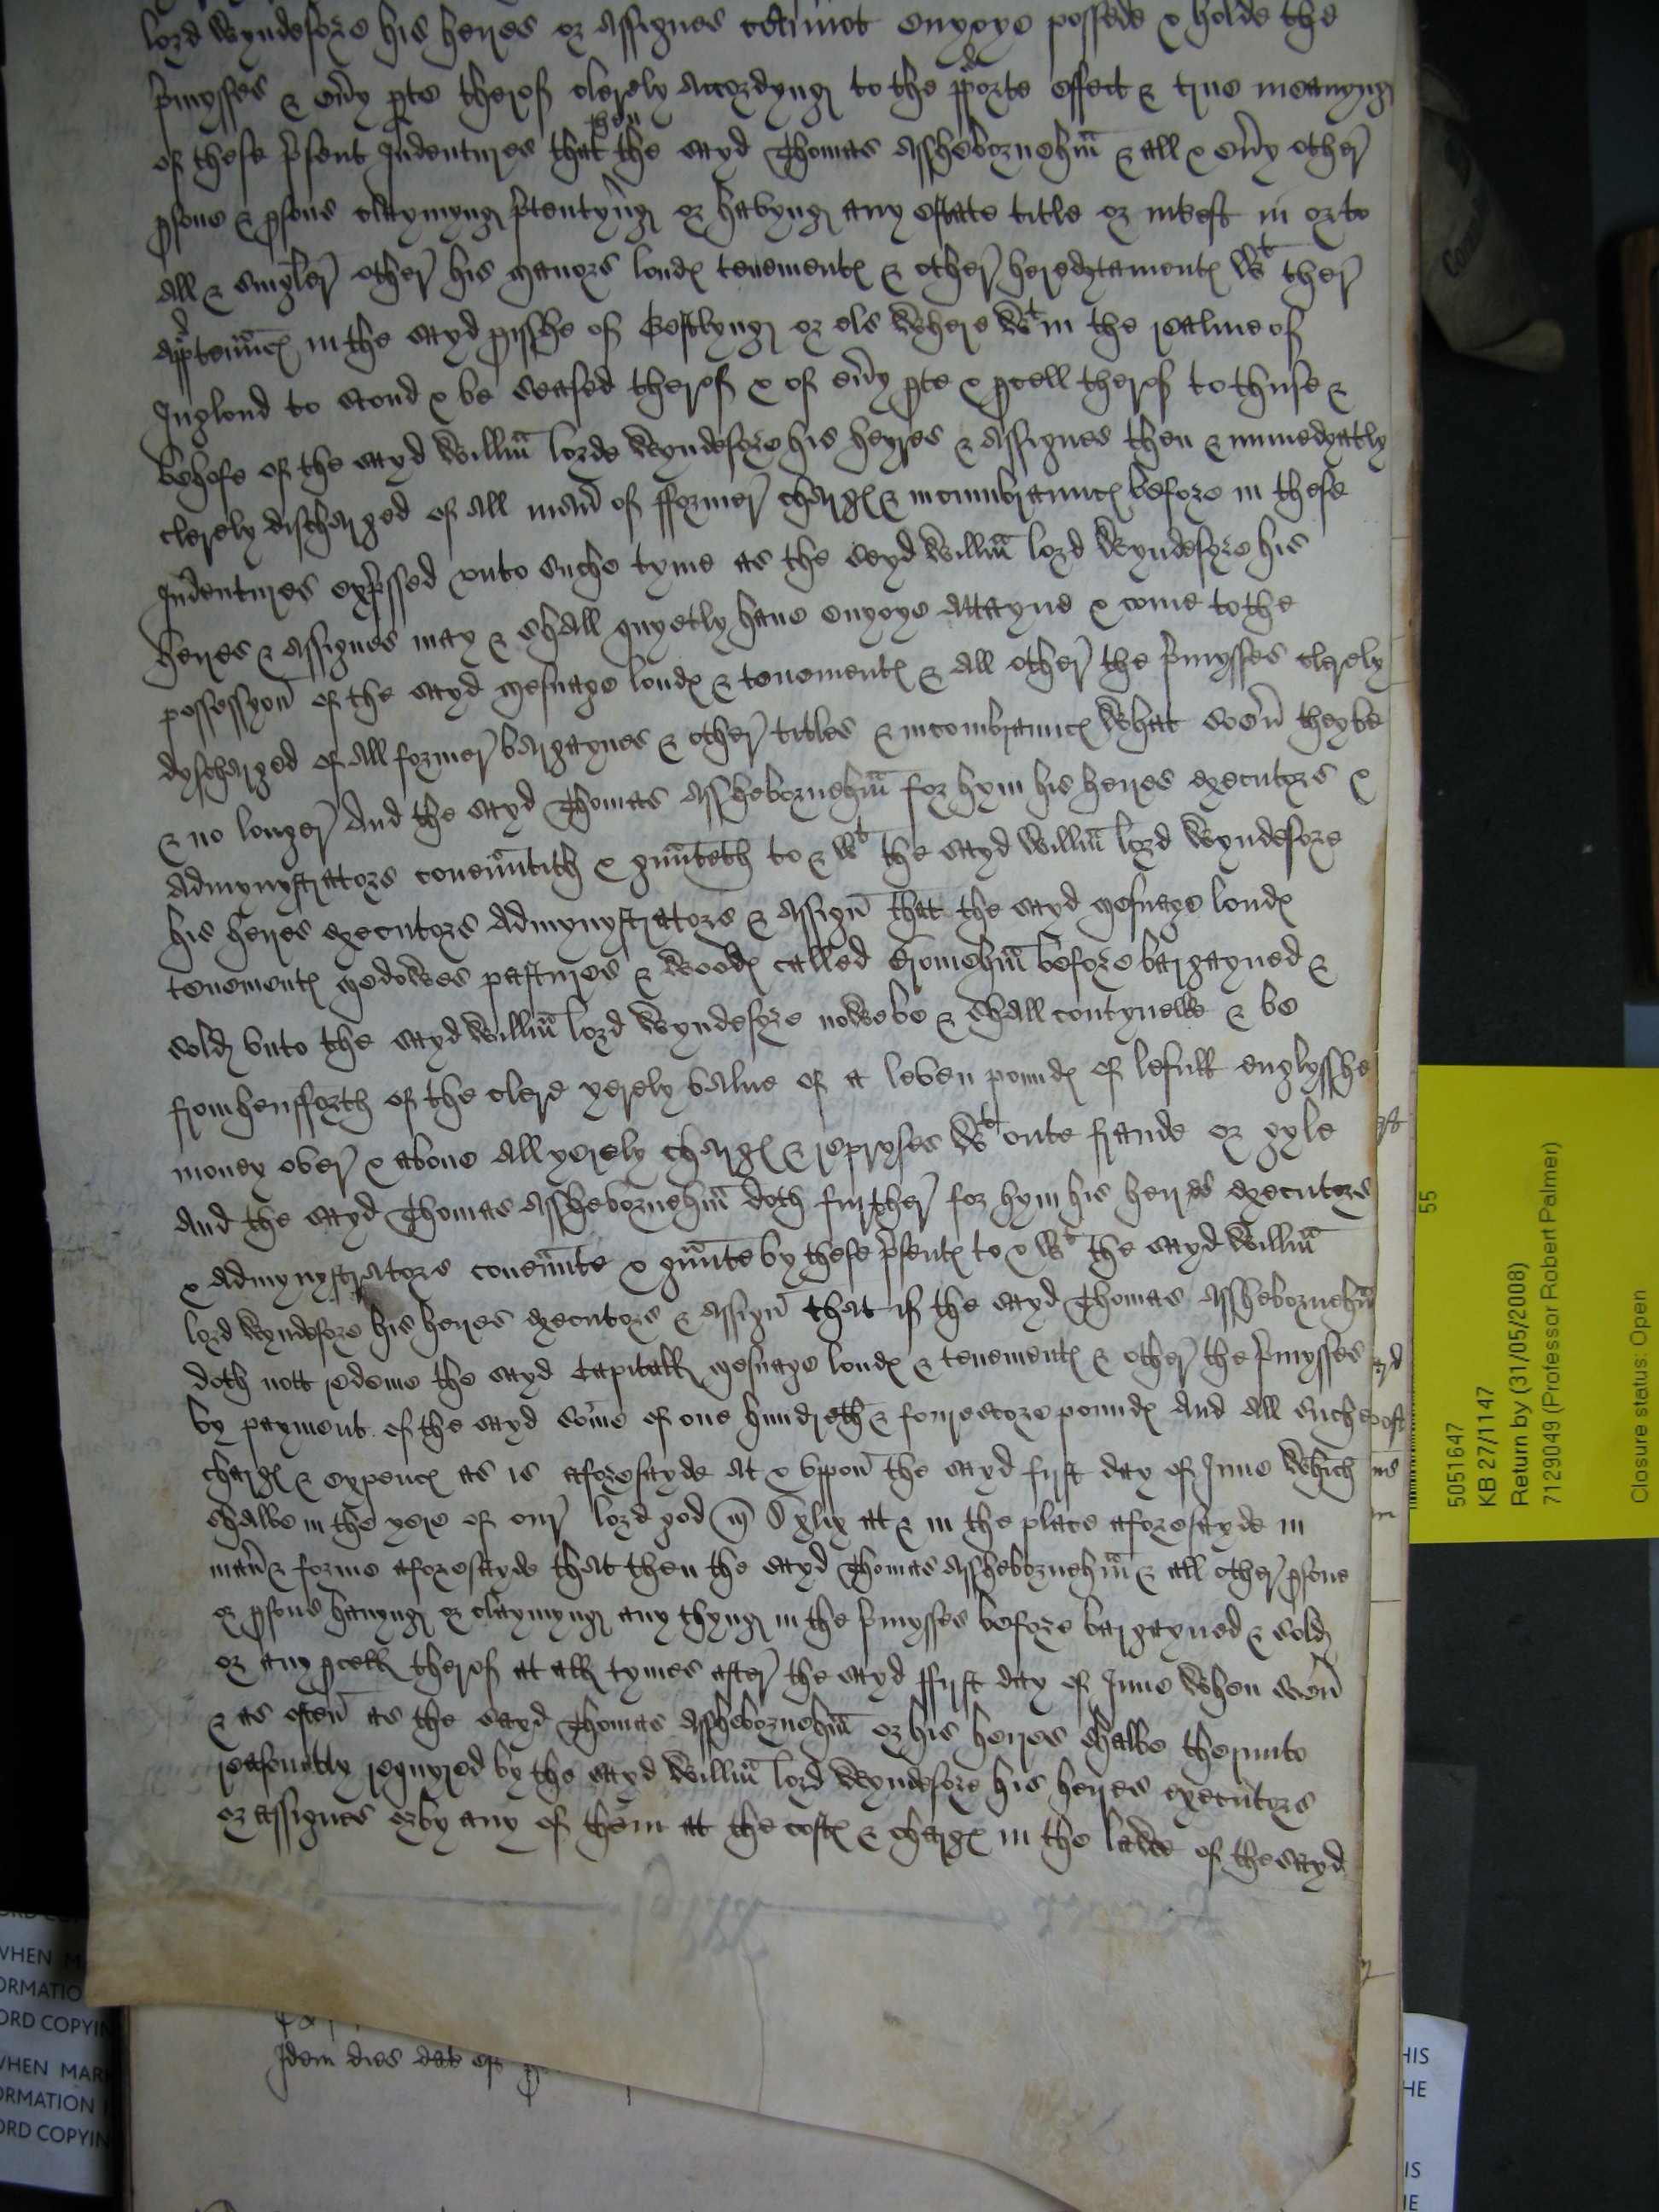 lord Wyndesore his heires or assignes cannot enyoye possede & holde the
p'mysses & ev'y p'te therof clerely accordyng to the p'porte effect & true meanyng
of these p'sent Indentures that then the sayd Thomas Assheborneh'm & all & ev'y other
p'sone & p'sons claymyng p'tentyng or havyng any estate title or int'est in or to
all & singler other his manors lond' tenement' & other heredytament' wt ther
app'ten'nc' in the sayd p'isshe of Gestlyng or els where wt in the realme of
Inglond to stond & be seased therof & of ev'y p'te & p'cell therof to thuse &
behofe of the sayd Will'm lorde Wyndesore his heyres & assignes then & immedyatly
clerely discharged of all man' of fformer charg' & incumbraunc' before in these
Indentures exp'ssed unto suche tyme as the seyd Will'm lord Wyndesore his
heires & assignes may & shall quyetly have enyoye attayne & come to the
possessyon of the sayd mesuage lond' & tenement' & all other the p'mysses clerely
dyscharged of all former bargaynes & other titles & incombraunc' what soev' they be
& no longer And the sayd Thomas Assheborneh'm for hym his heires executors &
admynystrators coven'ntith & gr'nteth to & wt the sayd Will'm lord Wyndesore
his heires executors admynystrators & assign' that the sayd mesuage lond'
tenement' medowes pastures & wood' called Bromeh'm before bargayned &
sold unto the sayd Will'm lord Wyndesore nowe be & shall contynewe & be
fromhensfforth of the clere yerely value of a leven pound' of lefull englysshe
money over & above all yerely charg' & repryses wt oute fraude or gyle
And the sayd Thomas Assheborneh'm doth further for hym his heires executors
& admynystrators coven'nte & gr'nte by these p'sent' to & wt the sayd Will'm
lord Wyndesore his heires executors & assign' that if the sayd Thomas Assheborneh'm
doth nott redeme the sayd capitall mesuage lond' & tenement' & other the p'mysses
by payment of the sayd some of one hundreth & fourescore pound' And all suche
charg' & expenc' as is aforesayde at & uppon the sayd fyrst day of June which
shalbe in the yere of our lord god m' D xlix at & in the place aforesayde in
man' & forme aforesayde that then the sayd Thomas Assheborneh'm & all other p'sone
or p'sons havyng or claymyng any thyng in the p'mysses before bargayned & sold
or any p'cell therof at all tymes after the sayd ffyrst day of June when soev'
& as often as the sayd Thomas Assheborneh'm or his heires shalbe therunto
reasonably requyred by the sayd Will'm lord Wyndesore his heires executors
or assignes or by any of them at the cost' & charg' in the lawe of the sayd
Idem dies dat' est p
55
5051647
KB 27/1147
Return by (31/05/2008)
7129049 (Professor Robert Palmer)
Closure status: Open